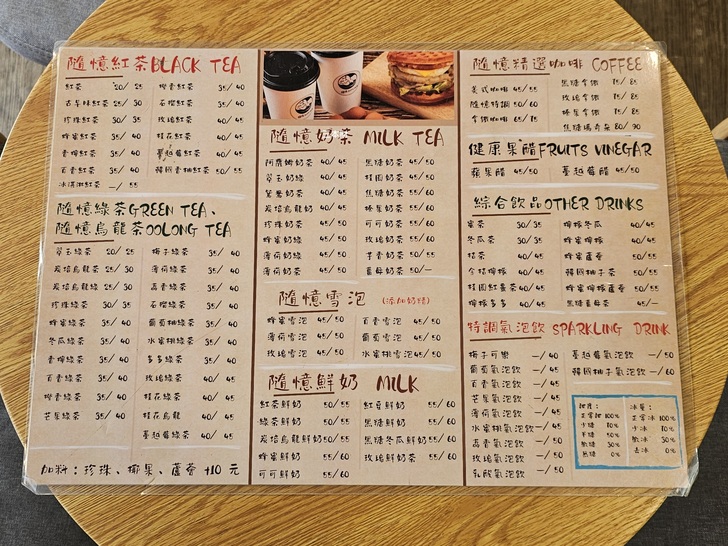 隨憶紅茶BLACK TEA
紅茶 20/ 25
古早味紅茶 25/ 30
珍珠紅茶 30/ 35
蜂蜜紅茶 35/ 40
青檸紅茶 35/ 40
百香紅茶 35/ 40
冰淇淋紅茶 —/ 55
橙香紅茶 35/ 40
石榴紅茶 35/ 40
玫瑰紅茶 40/ 45
桂花紅茶 40/ 45
蔓越莓紅茶 40/ 45
韓國香柚紅茶 50/ 55
隨憶綠茶GREEN TEA、
隨憶烏龍茶OOLONG TEA
翠玉綠茶 20/ 25
炭焙烏龍茶 25/ 30
炭焙烏龍綠 25/ 30
珍珠綠茶 30/ 35
蜂蜜綠茶 35/ 40
冬瓜綠茶 35/ 40
青檸綠茶 35/ 40
百香綠茶 35/ 40
橙香綠茶 35/ 40
芒果綠茶 35/ 40
梅子綠茶 35/ 40
薄荷綠茶 35/ 40
荔香綠茶 35/ 40
石榴綠茶 35/ 40
葡萄柚綠茶 35/ 40
水蜜桃綠茶 35/ 40
多多綠茶 35/ 40
玫瑰綠茶 40/ 45
桂花綠茶 40/ 45
桂花烏龍 40/ 45
蔓越莓綠茶 40/ 45
加料:珍珠、椰果、蘆薈 +10 元
隨憶奶茶 MILK TEA
阿薩姆奶茶 40/ 45
翠玉奶綠 40/ 45
鴛鴦奶茶 40/ 45
炭焙烏龍奶 40/ 45
珍珠奶茶 45/ 50
蜂蜜奶綠 45/ 50
薄荷奶綠 45/ 50
薄荷奶茶 45/ 50
黑糖奶茶 45/ 50
桂圓奶茶 45/ 50
焦糖奶茶 50/ 55
榛果奶茶 50/ 55
可可奶茶 50/ 55
玫瑰奶茶 55/ 60
芋香奶茶 55/ 50
薑母奶茶 50/—
隨憶雪泡 (添加奶精)
蜂蜜雪泡 45/ 50
薄荷雪泡 45/ 50
玫瑰雪泡 45/ 50
百香雪泡 45/ 50
葡萄雪泡 45/ 50
水蜜桃雪泡 45/ 50
隨憶鮮奶 MILK
紅茶鮮奶 50/ 55
綠茶鮮奶 50/ 55
炭焙烏龍鮮奶 50/ 55
蜂蜜鮮奶 55/ 60
可可鮮奶 55/ 60
紅豆鮮奶 55/ 60
黑糖鮮奶 55/ 60
黑糖冬瓜鮮奶 55/ 60
玫瑰鮮奶茶 55/ 60
隨憶精選咖啡 COFFEE
美式咖啡 45/ 55
隨憶特調 50/ 60
拿鐵咖啡 55/ 65
黑糖拿鐵 75/ 85
玫瑰拿鐵 75/ 85
榛果拿鐵 75/ 85
焦糖瑪奇朵 80/ 90
健康果醋FRUITS VINEGAR
蘋果醋 45/ 50
蔓越莓醋 45/ 50
綜合飲品OTHER DRINKS
蜜茶 30/ 35
冬瓜茶 30/ 35
桔茶 35/ 40
金桔檸檬 40/ 45
桂圓紅棗茶 40/ 45
檸檬多多 40/ 45
檸檬冬瓜 40/ 45
蜂蜜檸檬 40/ 45
蜂蜜蘆薈 50/ 55
韓國柚子茶 50/ 55
蜂蜜檸檬蘆薈 50/ 55
黑糖薑母茶 45/—
特調氣泡飲 SPARKLING DRINK
梅子可樂 —/ 40
葡萄氣泡飲 —/ 50
百香氣泡飲 —/ 50
芒果氣泡飲 —/ 50
薄荷氣泡飲 —/ 50
水蜜桃氣泡飲 —/ 50
荔香氣泡飲 —/ 50
玫瑰氣泡飲 —/ 50
乳酸氣泡飲 —/ 50
蔓越莓氣泡飲 —/ 50
韓國柚子氣泡飲 —/ 60
甜度:
正常甜 100%
少糖 70%
半糖 50%
微糖 30%
無糖 0%
冰量:
正常冰 100%
少冰 70%
微冰 30%
去冰 0%